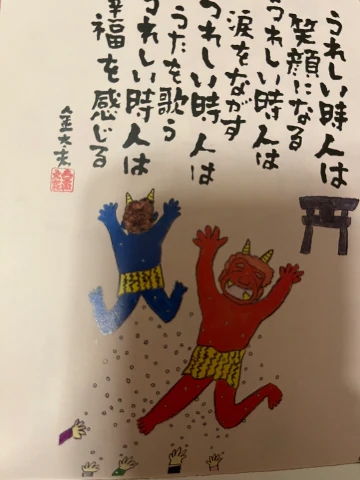 うれしい時人は
笑顔になる
うれしい時人は
涙をながす
うれしい時人は
うたを歌う
うれしい時人は
幸福を感じる